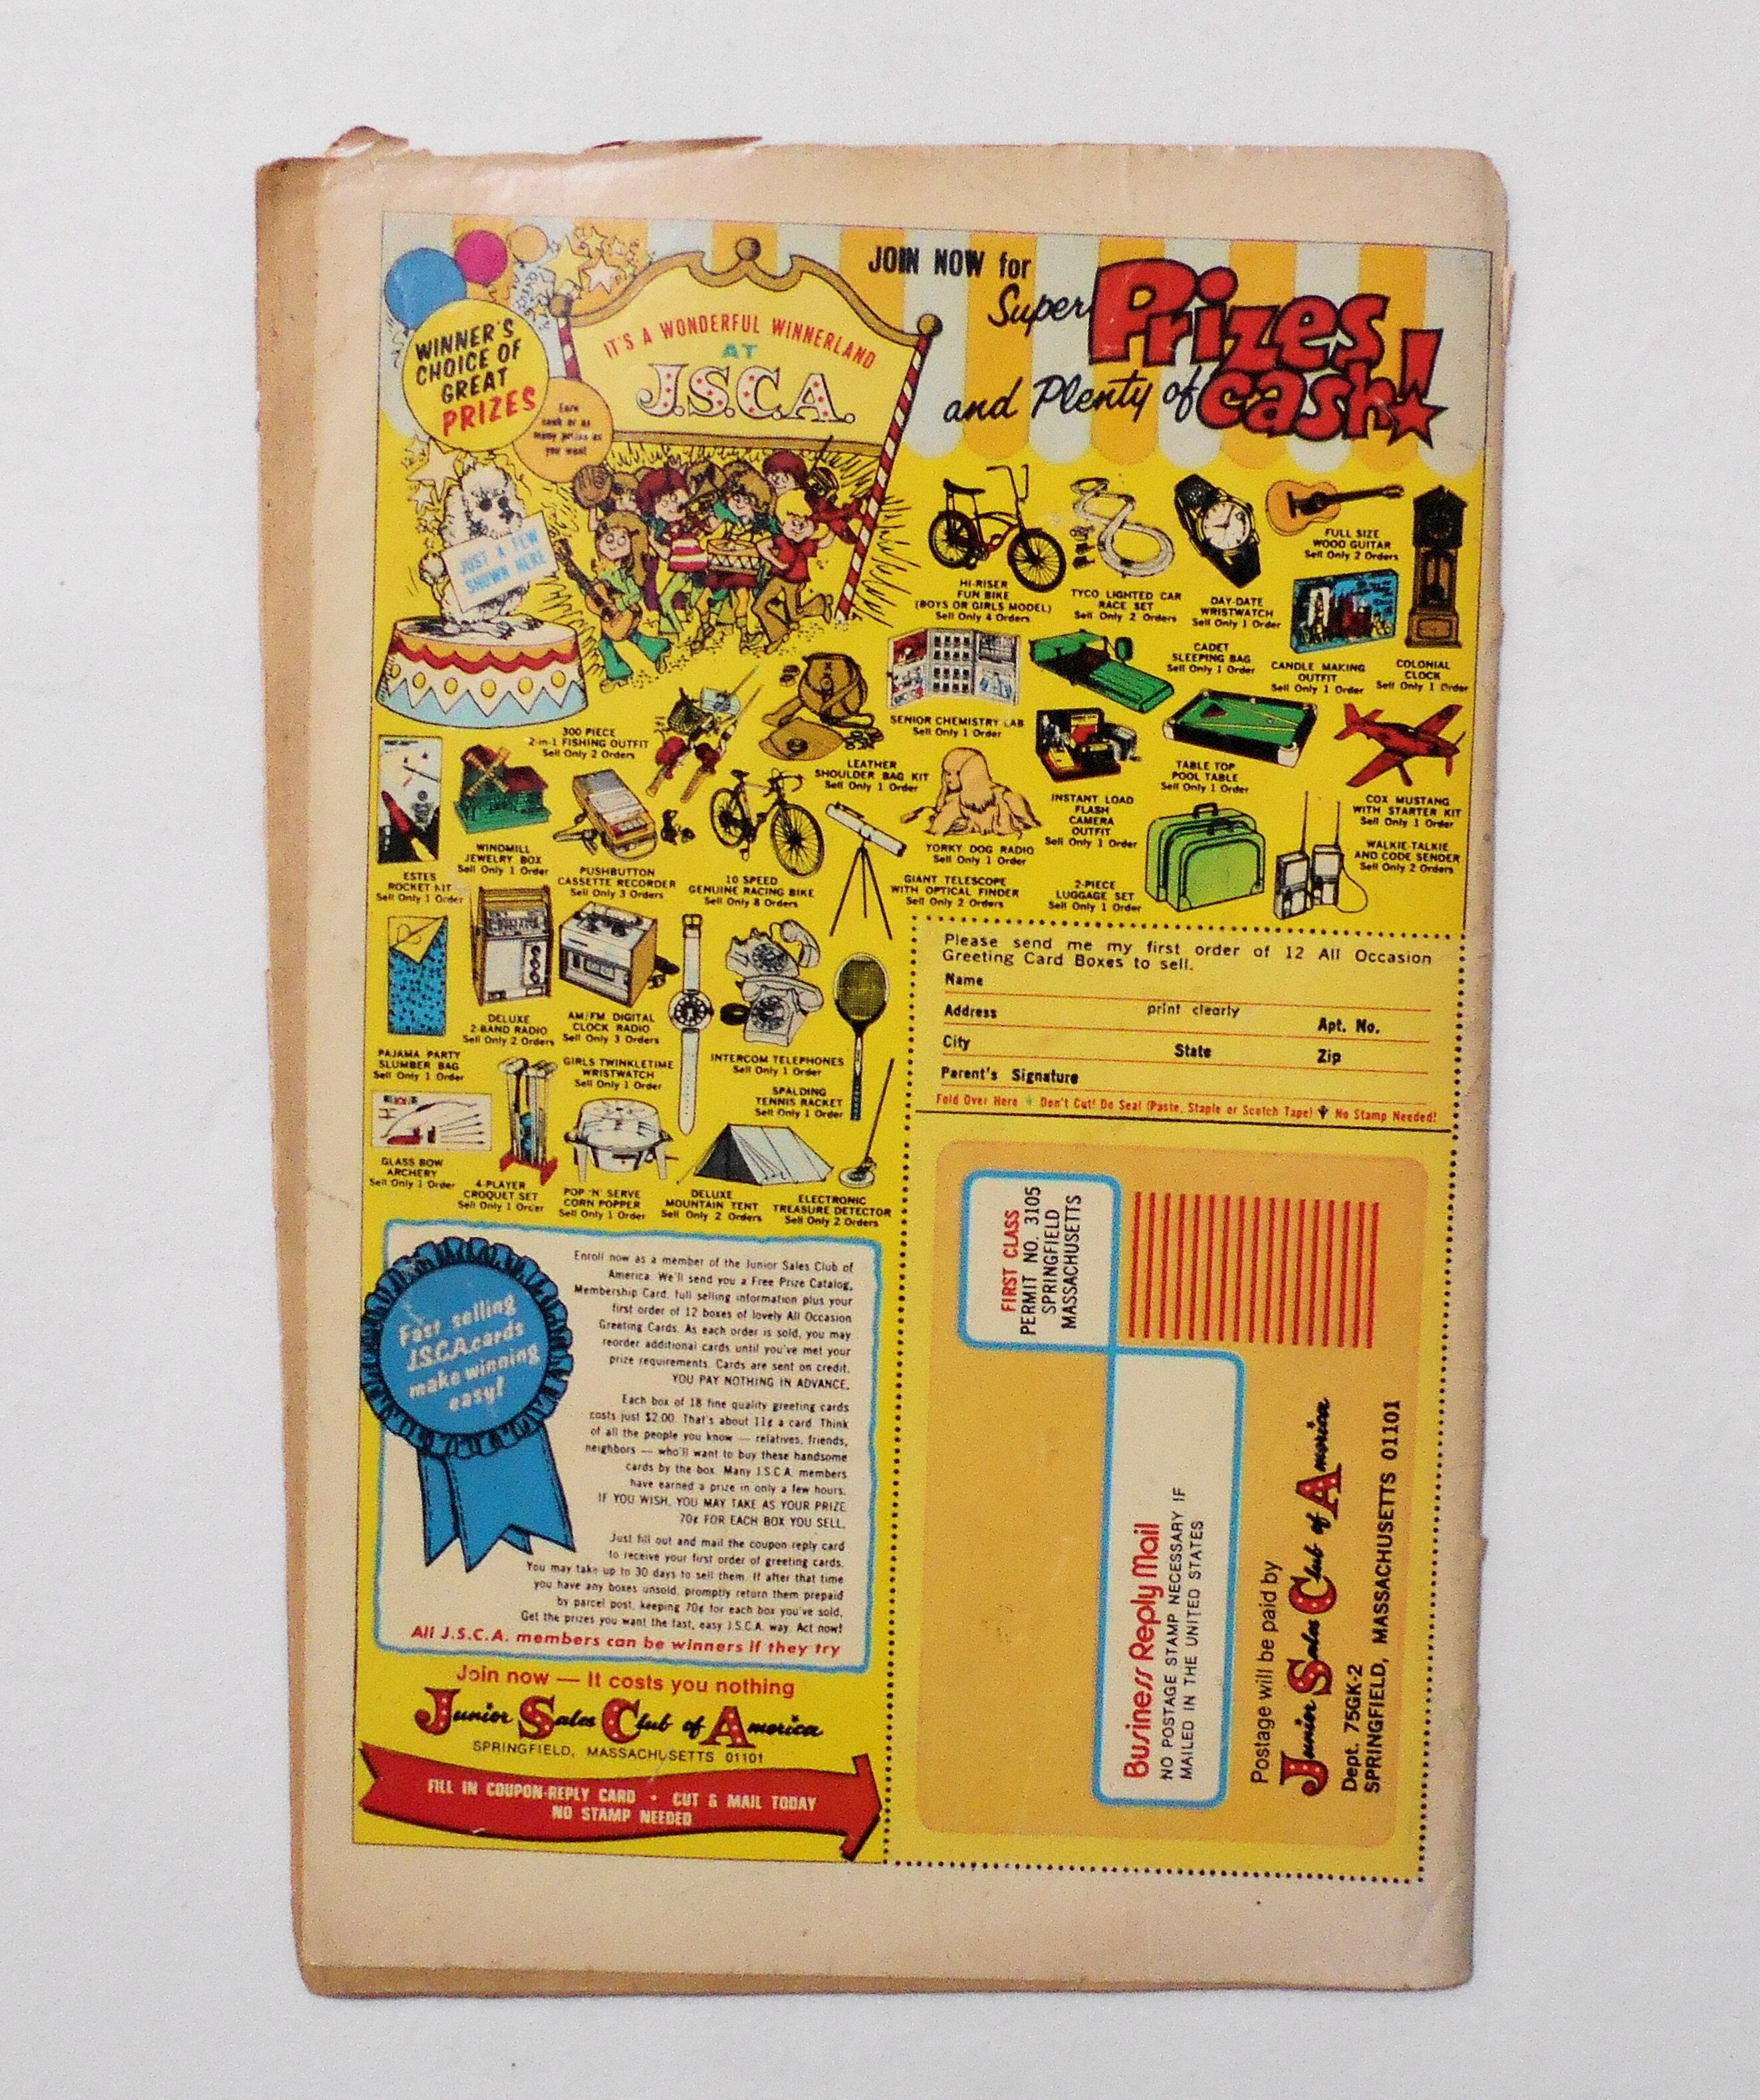 WINNER'S
CHOICE OF
GREAT
PRIZES
Earn
cash or as
many prizes as
you want
IT'S A WONDERFUL WINNERLAND
AT
J.S.C.A.
JUST A FEW
SHOWN HERE
JOIN NOW for
Super Prizes
and Plenty of cash!
HI-RISER
FUN BIKE
(BOYS OR GIRLS MODEL)
Sell Only 4 Orders
TYCO LIGHTED CAR
RACE SET
Sell Only 2 Orders
DAY-DATE
WRISTWATCH
Sell Only 1 Order
FULL SIZE
WOOD GUITAR
Sell Only 2 Orders
CANDLE MAKING
OUTFIT
Sell Only 1 Order
COLONIAL
CLOCK
Sell Only 1 Order
CADET
SLEEPING BAG
Sell Only 1 Order
SENIOR CHEMISTRY LAB
Sell Only 1 Order
300 PIECE
2-in-1 FISHING OUTFIT
Sell Only 2 Orders
LEATHER
SHOULDER BAG KIT
Sell Only 1 Order
INSTANT LOAD
FLASH
CAMERA
OUTFIT
Sell Only 1 Order
TABLE TOP
POOL TABLE
Sell Only 1 Order
COX MUSTANG
WITH STARTER KIT
Sell Only 1 Order
ESTES
ROCKET KIT
Sell Only 1 Order
WINDMILL
JEWELRY BOX
Sell Only 1 Order
PUSHBUTTON
CASSETTE RECORDER
Sell Only 3 Orders
10 SPEED
GENUINE RACING BIKE
Sell Only 8 Orders
YORKY DOG RADIO
Sell Only 1 Order
GIANT TELESCOPE
WITH OPTICAL FINDER
Sell Only 2 Orders
2-PIECE
LUGGAGE SET
Sell Only 1 Order
WALKIE-TALKIE
AND CODE SENDER
Sell Only 2 Orders
PAJAMA PARTY
SLUMBER BAG
Sell Only 1 Order
DELUXE
2-BAND RADIO
Sell Only 2 Orders
AM/FM DIGITAL
CLOCK RADIO
Sell Only 3 Orders
GIRLS TWINKLETIME
WRISTWATCH
Sell Only 1 Order
INTERCOM TELEPHONES
Sell Only 1 Order
SPALDING
TENNIS RACKET
Sell Only 1 Order
GLASS BOW
ARCHERY
Sell Only 1 Order
4-PLAYER
CROQUET SET
Sell Only 1 Order
POP 'N' SERVE
CORN POPPER
Sell Only 1 Order
DELUXE
MOUNTAIN TENT
Sell Only 2 Orders
ELECTRONIC
TREASURE DETECTOR
Sell Only 2 Orders
Fast selling
J.S.C.A. cards
make winning
easy!
Enroll now as a member of the Junior Sales Club of
America. We'll send you a Free Prize Catalog,
Membership Card, full selling information plus your
first order of 12 boxes of lovely All Occasion
Greeting Cards. As each order is sold, you may
reorder additional cards until you've met your
prize requirements. Cards are sent on credit.
YOU PAY NOTHING IN ADVANCE.
Each box of 18 fine quality greeting cards
costs just $2.00. That's about 11¢ a card. Think
of all the people you know — relatives, friends,
neighbors — who'll want to buy these handsome
cards by the box. Many J.S.C.A. members
have earned a prize in only a few hours.
IF YOU WISH, YOU MAY TAKE AS YOUR PRIZE
70¢ FOR EACH BOX YOU SELL.
Just fill out and mail the coupon-reply card
to receive your first order of greeting cards.
You may take up to 30 days to sell them. If after that time
you have any boxes unsold, promptly return them prepaid
by parcel post, keeping 70¢ for each box you've sold.
Get the prizes you want the fast, easy J.S.C.A. way. Act now!
All J.S.C.A. members can be winners if they try
Join now — It costs you nothing
Junior Sales Club of America
SPRINGFIELD, MASSACHUSETTS 01101
FILL IN COUPON-REPLY CARD • CUT & MAIL TODAY
NO STAMP NEEDED
Please send me my first order of 12 All Occasion
Greeting Card Boxes to sell.
Name
Address print clearly Apt. No.
City State Zip
Parent's Signature
Fold Over Here Don't Cut! Do Seal (Paste, Staple or Scotch Tape) No Stamp Needed!
FIRST CLASS
PERMIT NO. 3105
SPRINGFIELD
MASSACHUSETTS
Business Reply Mail
NO POSTAGE STAMP NECESSARY IF
MAILED IN THE UNITED STATES
Postage will be paid by
Junior Sales Club of America
Dept. 75GK-2
SPRINGFIELD, MASSACHUSETTS 01101